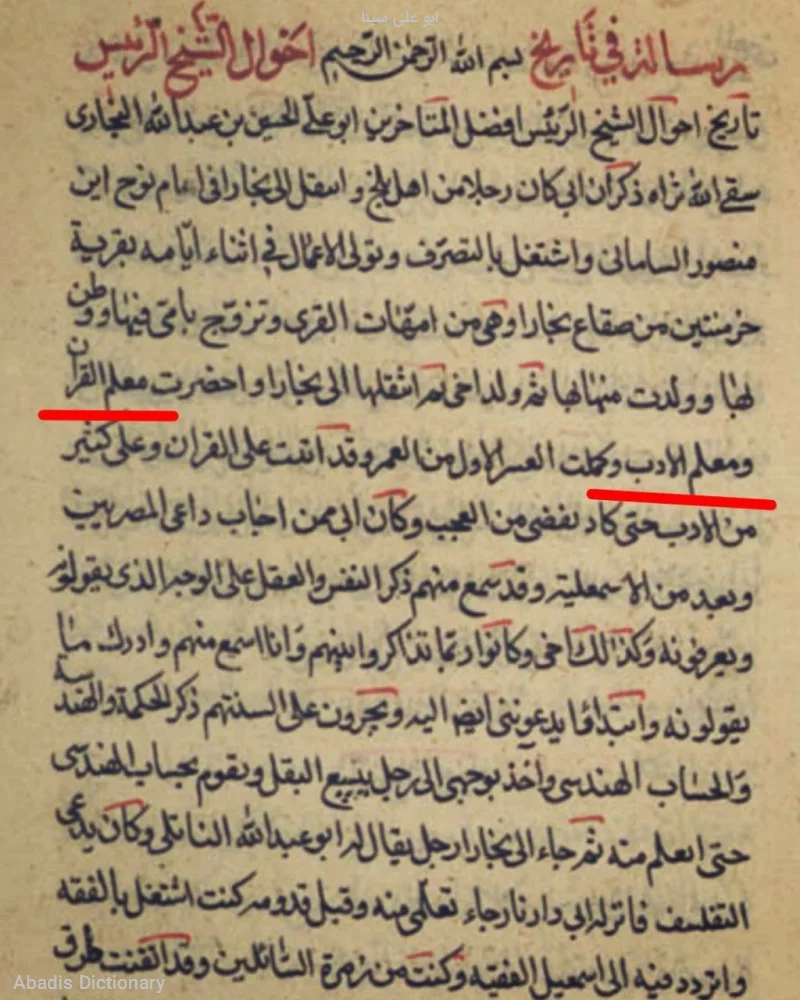 ابو علی سینا
رسالة في تاريخ بسم الله الرحمن الرحيم احوال الشيخ الرئيس
تاريخ احوال الشيخ الرئيس افضل المتاخرين ابو علي الحسين بن عبد الله البخاري
سقى الله ثراه ذكر ان ابي كان رجلا من اهل بلخ و انتقل الى بخارا في ايام نوح ابن
منصور الساماني و اشتغل بالتصرف و تولى الاعمال في اثناء ايامه بقرية
خرمنتين من صقاع بخارا وهي من امهات القرى و تزوج بامي فيها و وطن
لها و ولدت منها لها ثم ولد اخي ثم انتقلها الى بخارا و احضرت معلم القران
و معلم الادب وكملت العشر الاول من العمر و قد اتت على القران و على كثير
من الادب حتى كاد يقضي من العجب و كان ابي ممن اجاب داعي المصريين
و يعد من الاسمعلية و قد سمع منهم ذكر النفس و العقل على الوجه الذي يقولونه
و يعرفونه و كذلك اخي و كانوا ربما تذاكروا بينهم و انا اسمع منهم و ادرك ما
يقولونه و ابتداوا يدعونني ايضا اليه و يجرون على السنتهم ذكر الحكمة و الهندسة
و الحساب الهندسي و اخذ يوجهني الى رجل يبيع البقل و يقوم بحساب الهندسي
حتى اتعلم منه ثم جاء الى بخارا رجل يقال له ابو عبد الله الناتلي و كان يدعي
التفلسف فانزله ابي دارنا رجاء تعلمي منه و قبل قدومه كنت اشتغل بالفقه
و اتردد فيه الى اسمعيل الفقيه و كنت من زمرة السائلين و قد اتقنت طرق
Abadis Dictionary